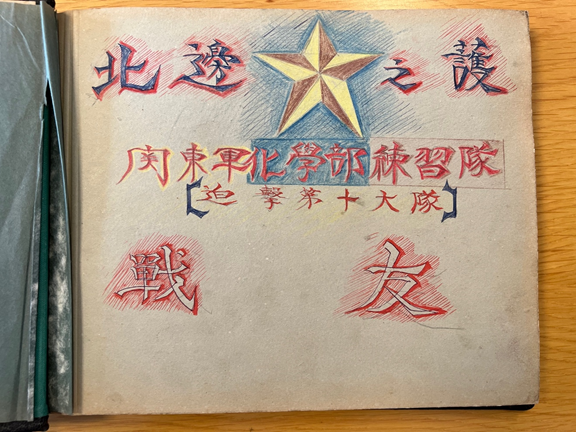 北邊之護
関東軍化學部練習隊
【迫撃第十大隊】
戰友